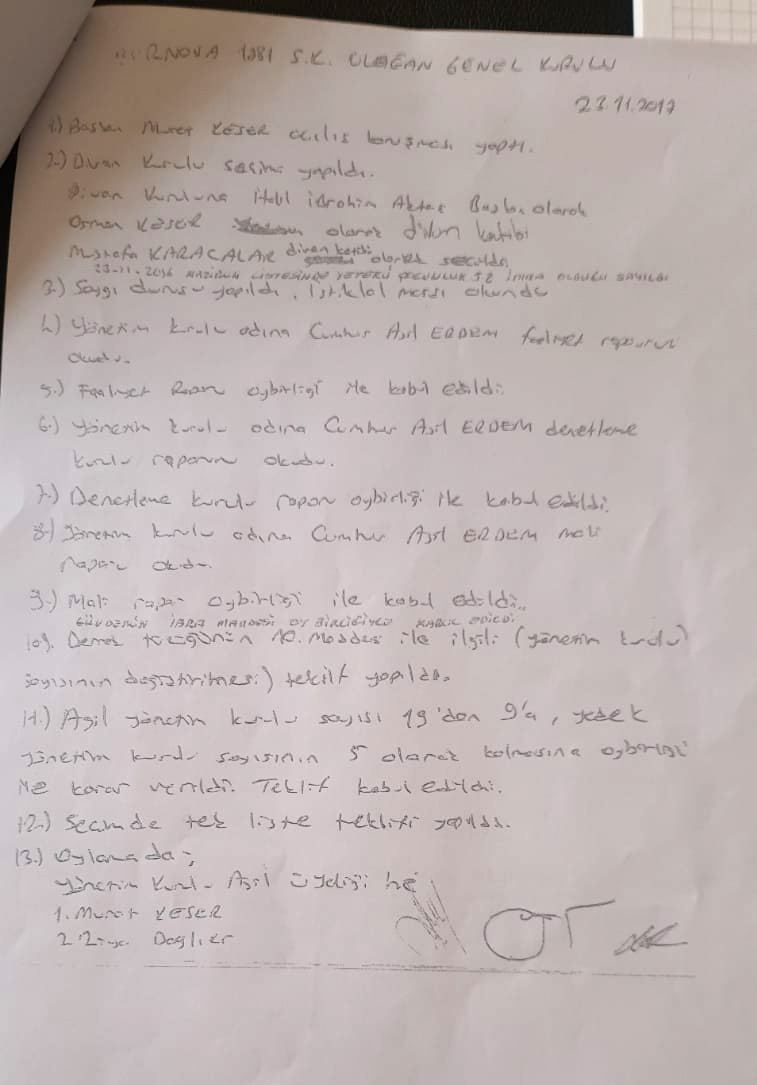 BORNOVA 1881 S.K. OLAĞAN GENEL KURULU
23.11.2017
1) Başkan Murat KESER açılış konuşması yaptı.
2-) Divan Kurulu seçimi yapıldı.
Divan Kuruluna Halil ibrahim Aktaş Başkan olarak
Osman KESER olarak divan katibi
Mustafa KARACALAR divan katibi olarak seçildi.
23-11-2016 HAZİRUN LİSTESİNDE YETERLİ ÇOĞUNLUK 52 OLDUĞU
3-) Saygı duruşu yapıldı, İstiklal marşı okundu
4-) Yönetim kurulu adına Cumhur Asil ERDEM faaliyet raporunu
okudu.
5-) Faaliyet Raporu oybirliği ile kabul edildi.
6-) Yönetim kurulu adına Cumhur Asil ERDEM denetleme
kurulu raporunu okudu.
7-) Denetleme kurulu raporu oybirliği ile kabul edildi.
8-) Yönetim kurulu adına Cumhur Asil ERDEM mali
raporu okudu.
9-) Mali rapor oybirliği ile kabul edildi.
İBRA MADDESİ OY BİRLİĞİYLE KABUL EDİLDİ.
10-) Dernek tüzüğünün 10. Maddesi ile ilgili (yönetim kurulu
sayısının değiştirilmesi) teklif yapıldı.
11-) Asil yönetim kurulu sayısı 19'dan 9'a, yedek
yönetim kurulu sayısının 5 olarak kalmasına oybirliği
ile karar verildi. Teklif kabul edildi.
12-) Seçimde tek liste teklifi yapıldı.
13-) Oylamada;
Yönetim Kurulu Asil üyeliği ne
1. Murat KESER
2. Dağlıer